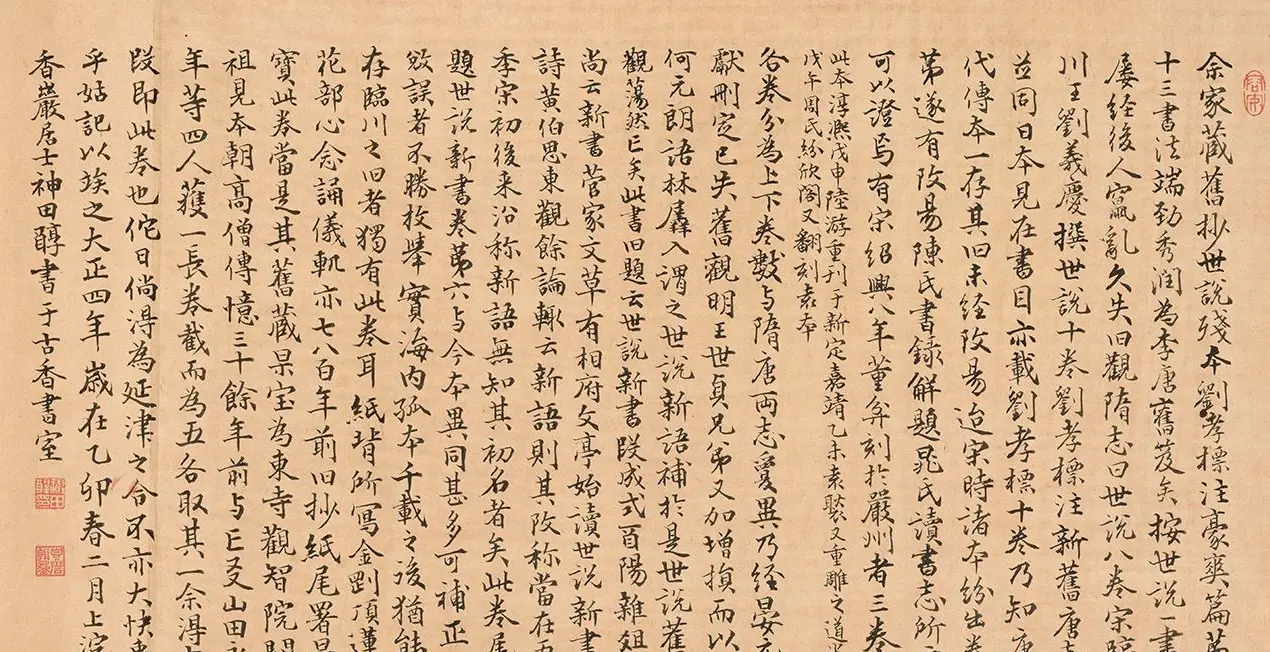 余家藏舊抄世說殘本劉孝標注豪爽篇
十三書法端勁秀潤為李唐舊笈矣按世說一書
屢經後人竄亂久失旧觀隋志曰世說八卷宋臨
川王劉義慶撰世說十卷劉孝標注新舊唐志
並同日本見在書目亦載劉孝標十卷乃知唐
代傳本一存其旧未經改易迨宋時諸本紛出卷
第遂有改易陳氏書錄解題晁氏讀書志所
可以證焉有宋紹興八年董弅刻於嚴州者三卷
此本淳熙戊申陸游重刊于新定嘉靖乙未袁褧又重雕之道光
戊午周氏紛欣閣又翻刻袁本
各卷分為上下卷數与隋唐両志爰異乃經晏元
獻刪定已失舊觀明王世貞兄弟又加增損而以
何元朗語林羼入謂之世說新語補於是世說舊
觀蕩然亡矣此書旧題云世說新書段成式酉陽雜俎
尚云新書菅家文草有相府文亭始讀世說新書
詩黃伯思東觀餘論輒云新語則其改称當在五
季宋初後来沿称新語無知其初名者矣此卷尾
題世說新書卷第六与今本異同甚多可補正
敓誤者不勝枚舉實海内孤本千載之後猶能
存臨川之旧者獨有此卷耳紙背所寫金剛頂蓮
花部心念誦儀軌亦七八百年前旧抄紙尾署杲
寶此卷當是其舊藏杲宝為東寺觀智院開
祖見本朝高僧傳憶三十餘年前与亡友山田永
年等四人獲一長卷截而為五各取其一余得
段即此卷也佗日倘得為延津之合不亦大快事
乎姑記以竢之大正四年歲在乙卯春二月上浣
香巖居士神田醇書于古香書室